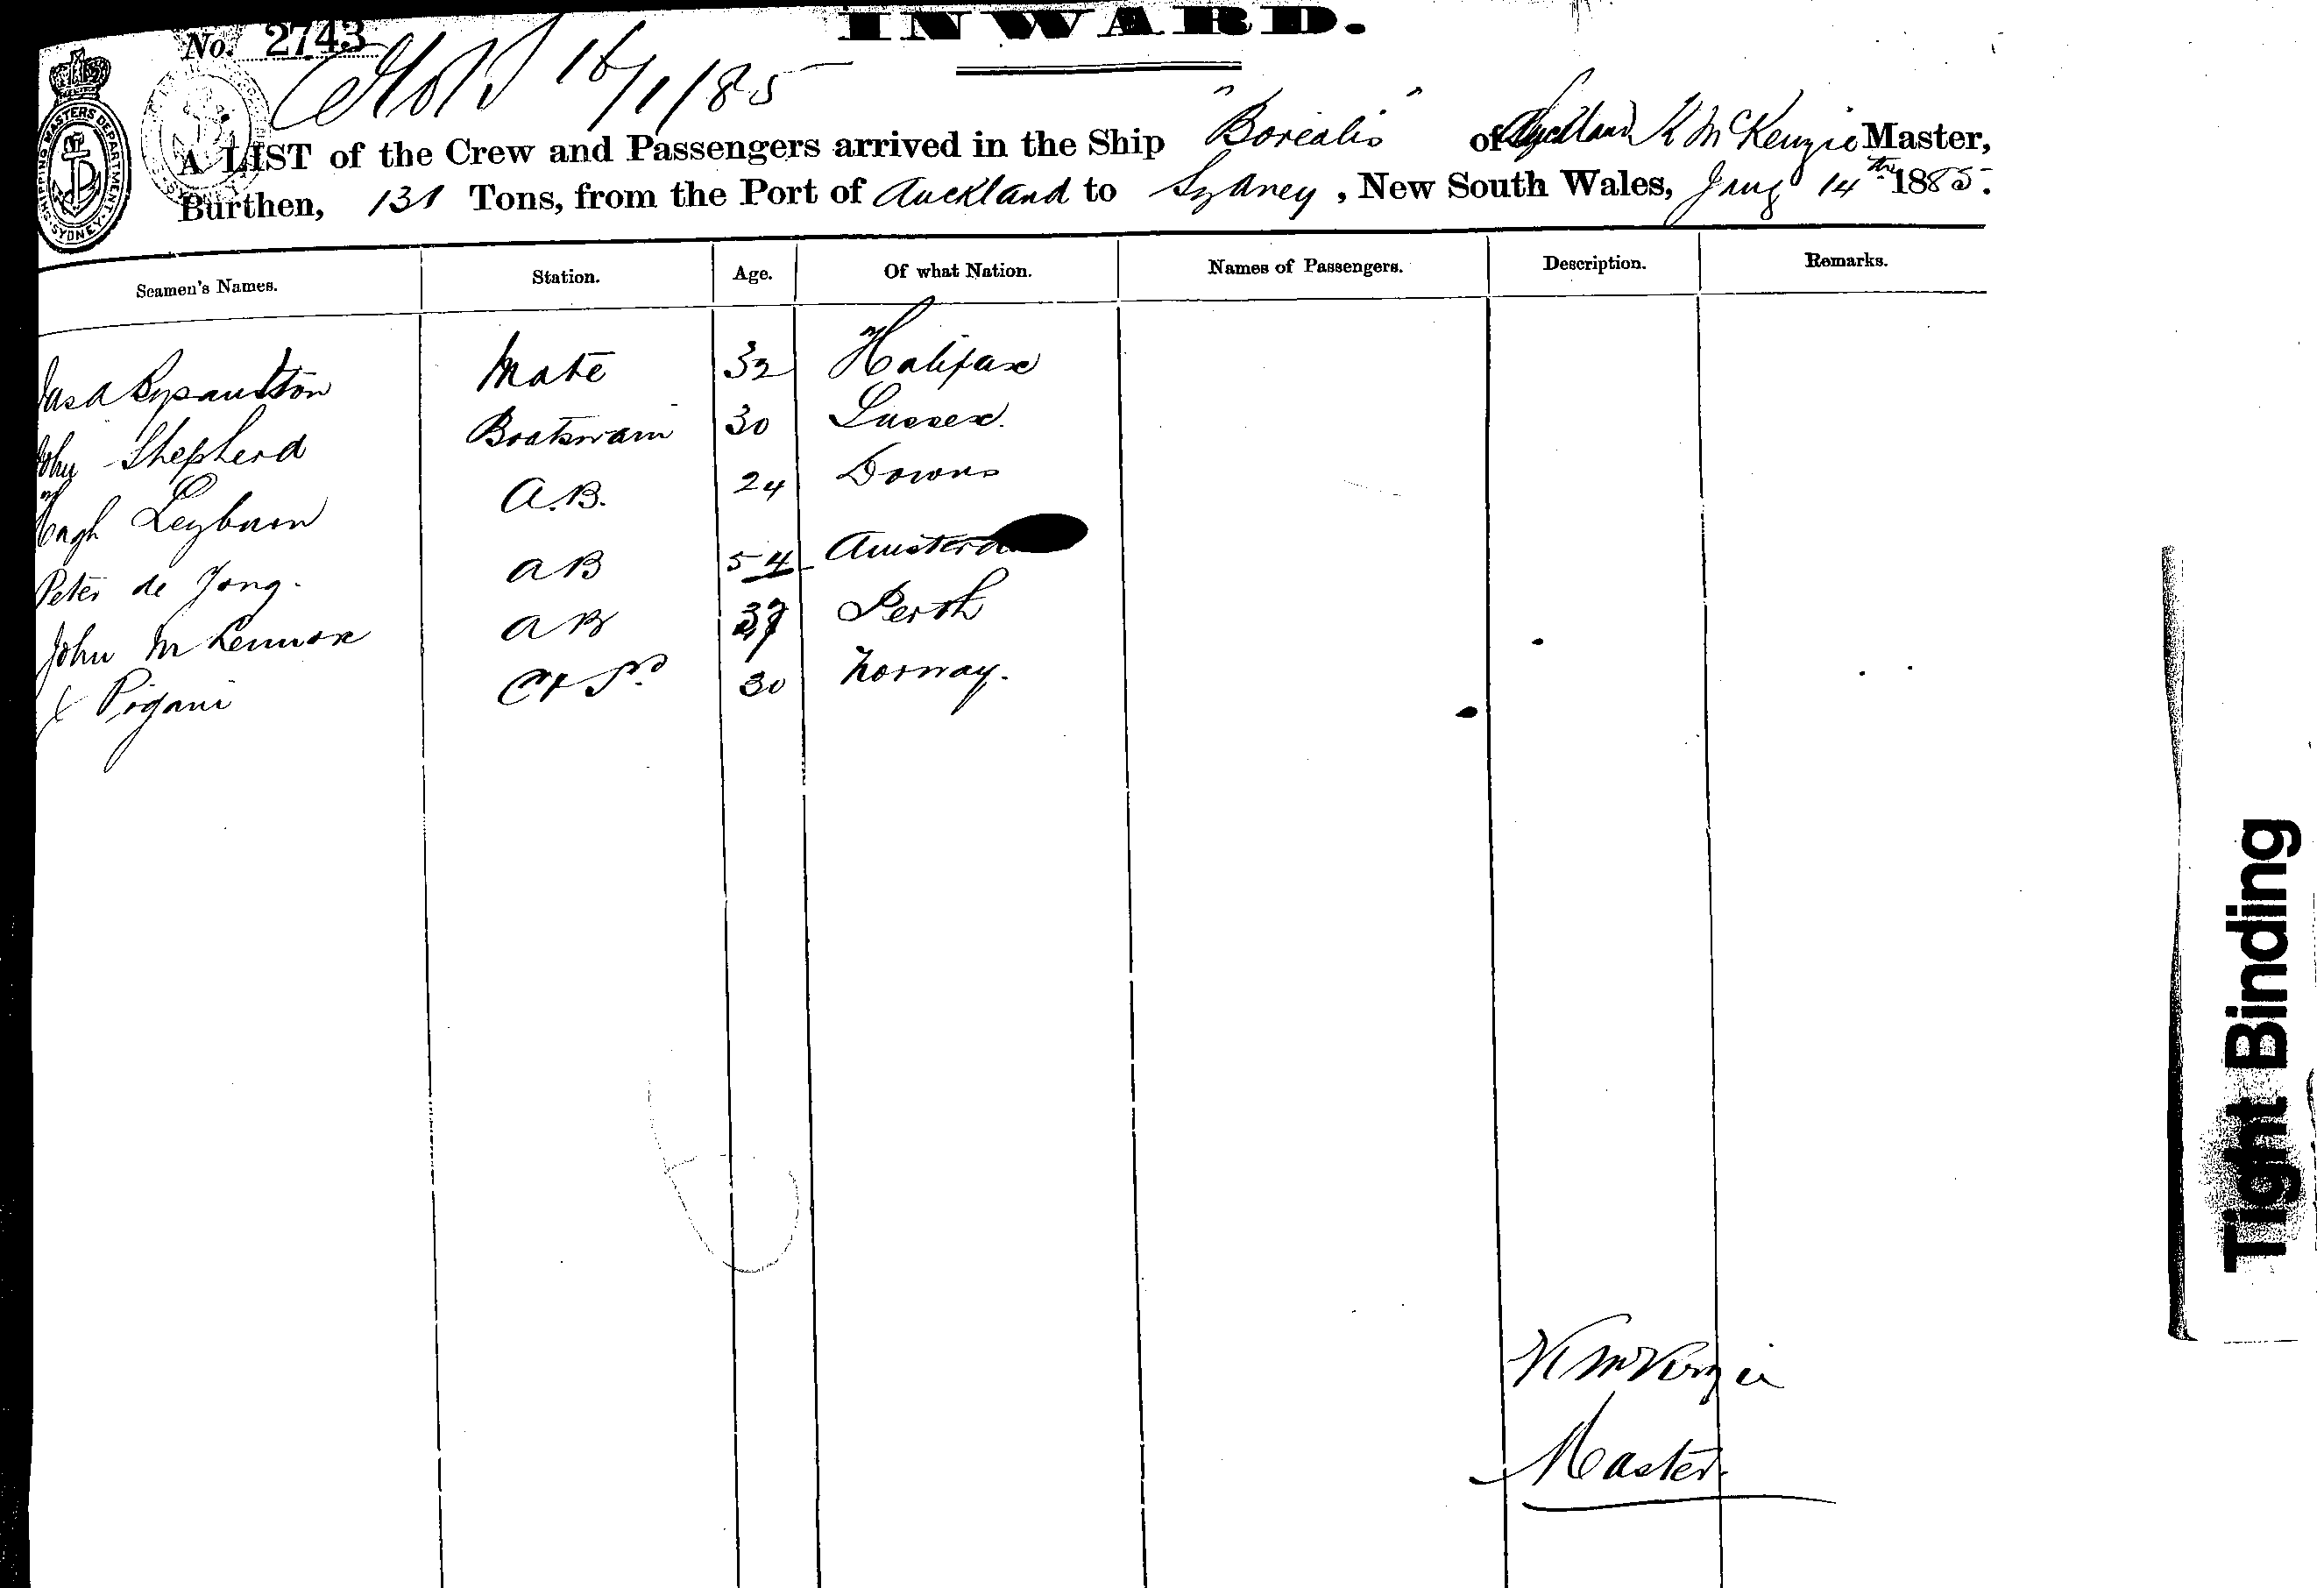 INWARD.
No. 2743
16/1/85
SHIPPING MASTERS DEPARTMENT. SYDNEY
A LIST of the Crew and Passengers arrived in the Ship "Borealis" of Auckland K McKenzie Master,
Burthen, 131 Tons, from the Port of Auckland to Sydney, New South Wales, Jany 14th 1885.
Seamen's Names. Station. Age. Of what Nation. Names of Passengers. Description. Remarks.
Jas A Mate 32 Halifax
John Shepherd Boatswain 30 Sussex.
Hugh Leyburn A.B. 24 Downs
Peter de Jong. AB 54 Amsterda
John McLennox AB 37 Perth
Pigani 30 Norway.
K McKenzie
Master.
Tight Binding